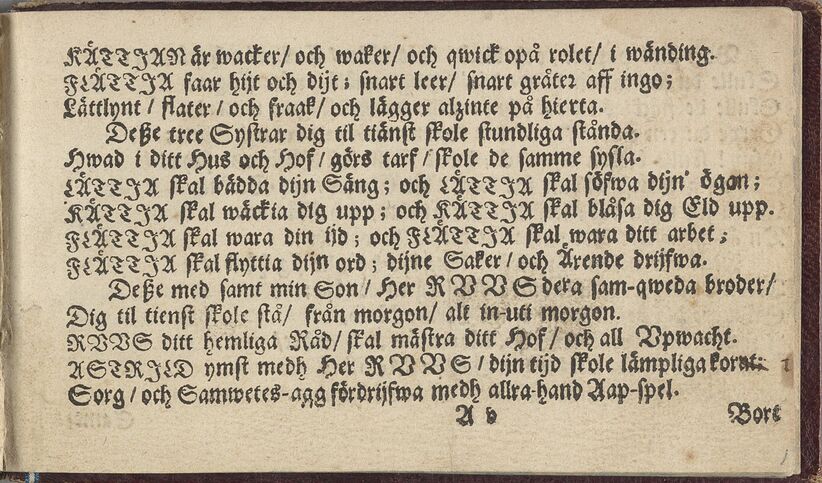 KÄTTIAN är wacker/ och waker/ och qwick opå rolet/ i wänding.
FLÄTTIA faar hijt och dijt; snart leer/ snart gråter aff ingo;
Lättlynt/ flater/ och fraak/ och lägger alzinte på hierta.
Deße tree Systrar dig til tiänst skole stundliga stånda.
Hwad i ditt Hus och Hof/ görs tarf/ skole de samme sysla.
LÄTTIA skal bädda dijn Säng; och LÄTTIA skal söfwa dijn ögon;
KÄTTIA skal wäckia dig upp; och KÄTTIA skal blåsa dig Eld upp.
FLÄTTIA skal wara din ijd; och FLÄTTIA skal wara ditt arbet;
FLÄTTIA skal flyttia dijn ord; dijne Saker/ och Ärende drijfwa.
Deße med samt min Son/ Her RVVS dera sam-qweda broder/
Dig til tienst skole stå/ från morgon/ alt in-uti morgon.
RVVS ditt hemliga Råd/ skal mästra ditt Hof/ och all Vpwacht.
ASTRILD ymst medh Her RVVS/ dijn tijd skole lämpliga korta;
Sorg/ och Samwetes-agg fördrijfwa medh allra-hand Aap-spel.
A b Bort